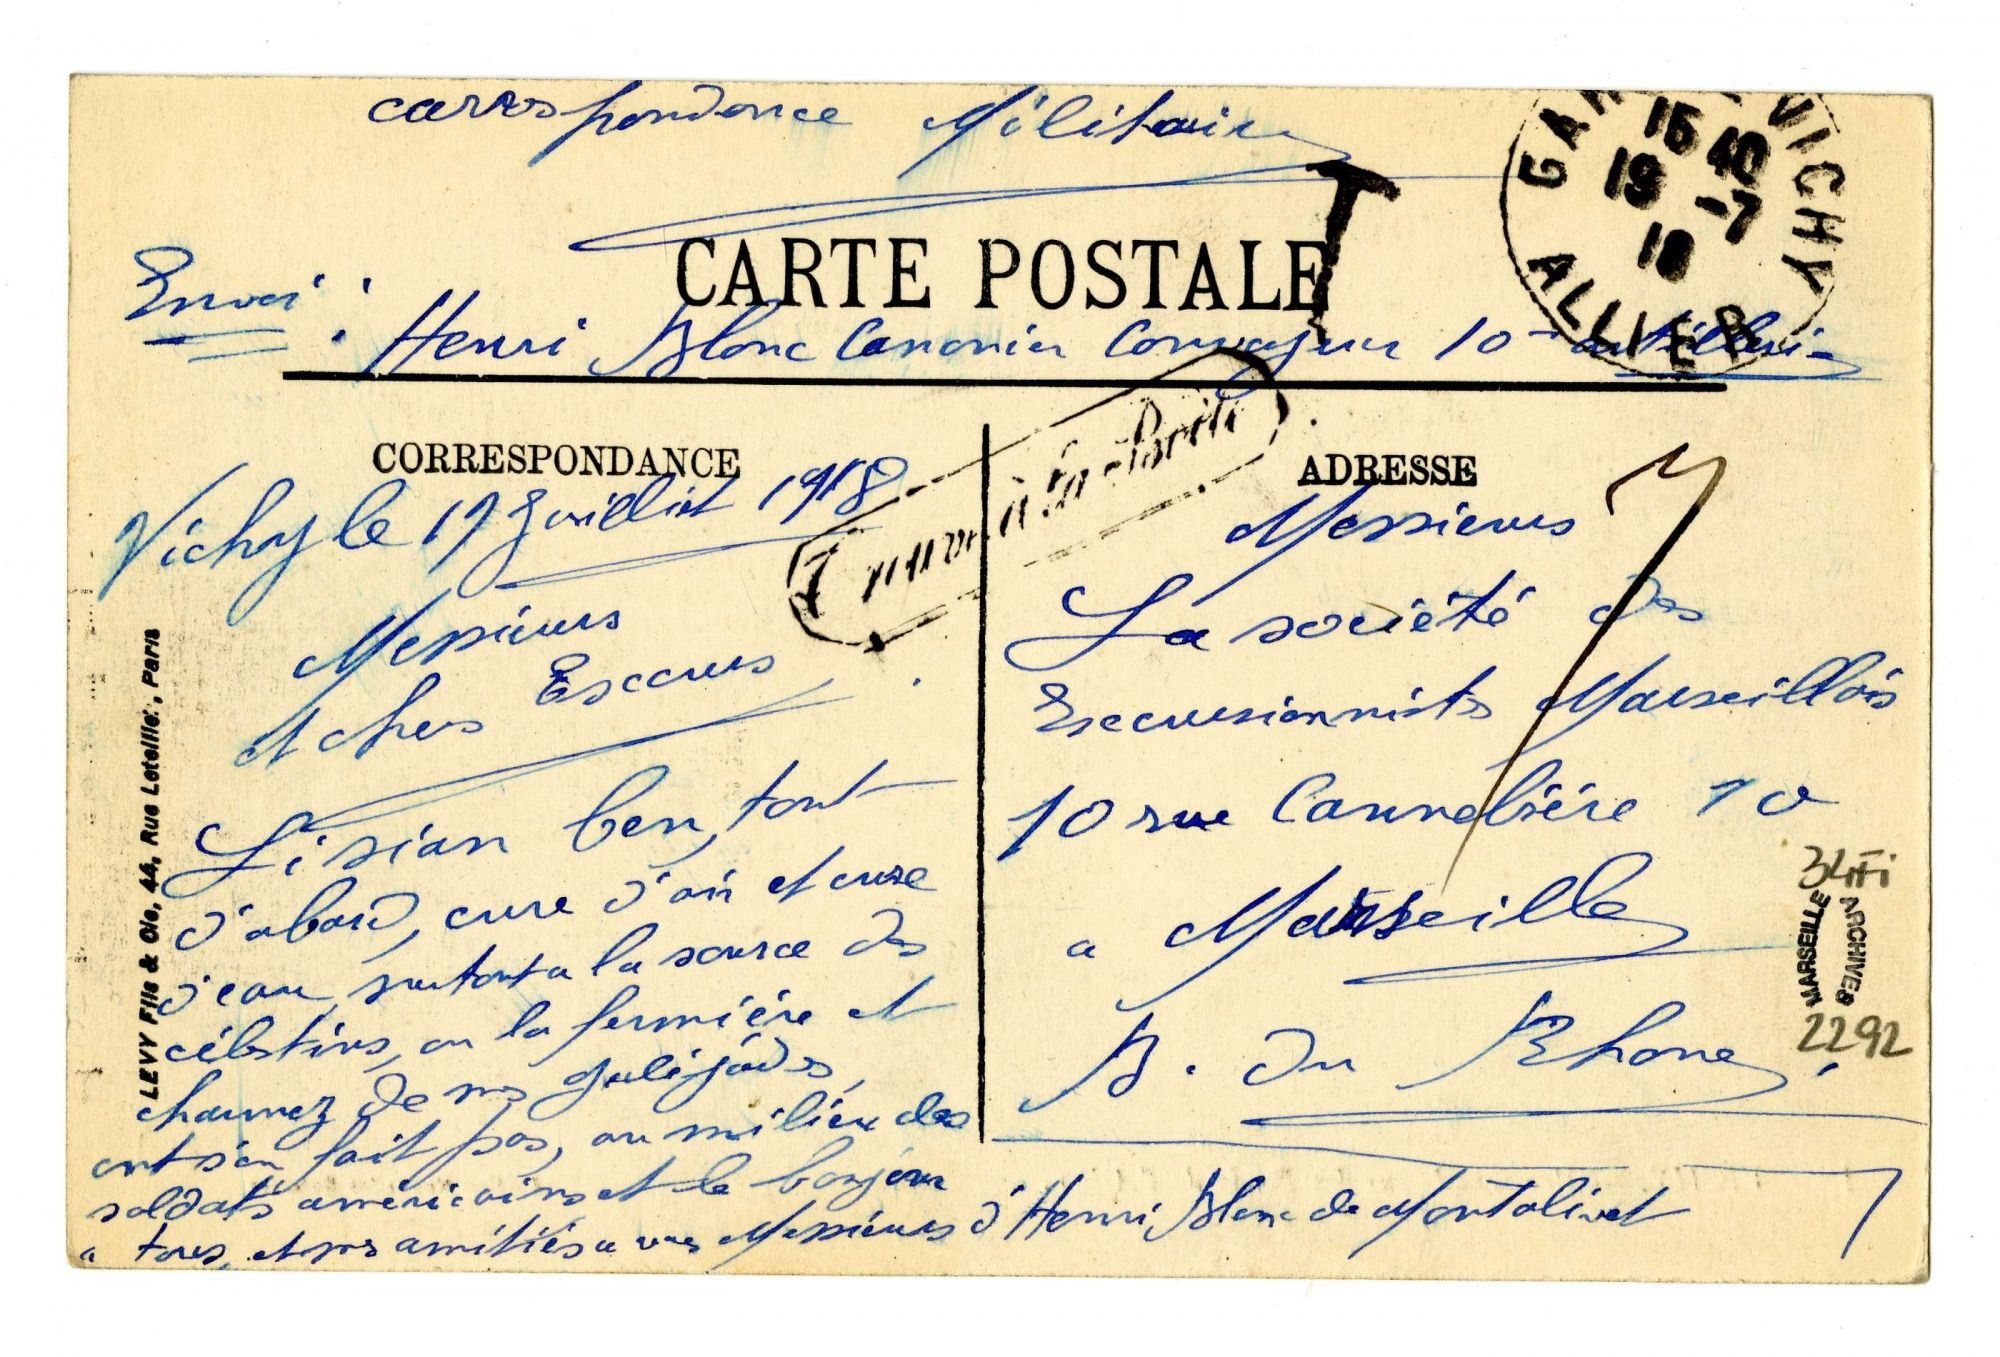 carrespondance Militaire
T
GARE VICHY
15 40
19 -7
18
ALLIER
CARTE POSTALE
Envoi :
Henri Blanc Canonier Conv 10 artillerie
CORRESPONDANCE
ADRESSE
Trouvé à la Boîte
Vichy le 19 Juillet 1918
Messieurs
et chers Excurs
Li sian ben, tout
d'abord, cure d'air et cure
d'eau, surtout a la source des
célestins, ou la fermiére et
chaumez de nos galéjades,
ont s'en fait pas, au milieu des
soldats américains et le bonjour
a tous, et mes amitiés a vous Messieurs d'Henri Blanc de Montolivet
Messieurs
La société des
Excursionnistes Marseillais
10 rue Cannebiére 10
a Marseille
B. du Rhone
34Fi
MARSEILLE
ARCHIVES
2292
LEVY Fils & Cie, 44, Rue Letellier, Paris